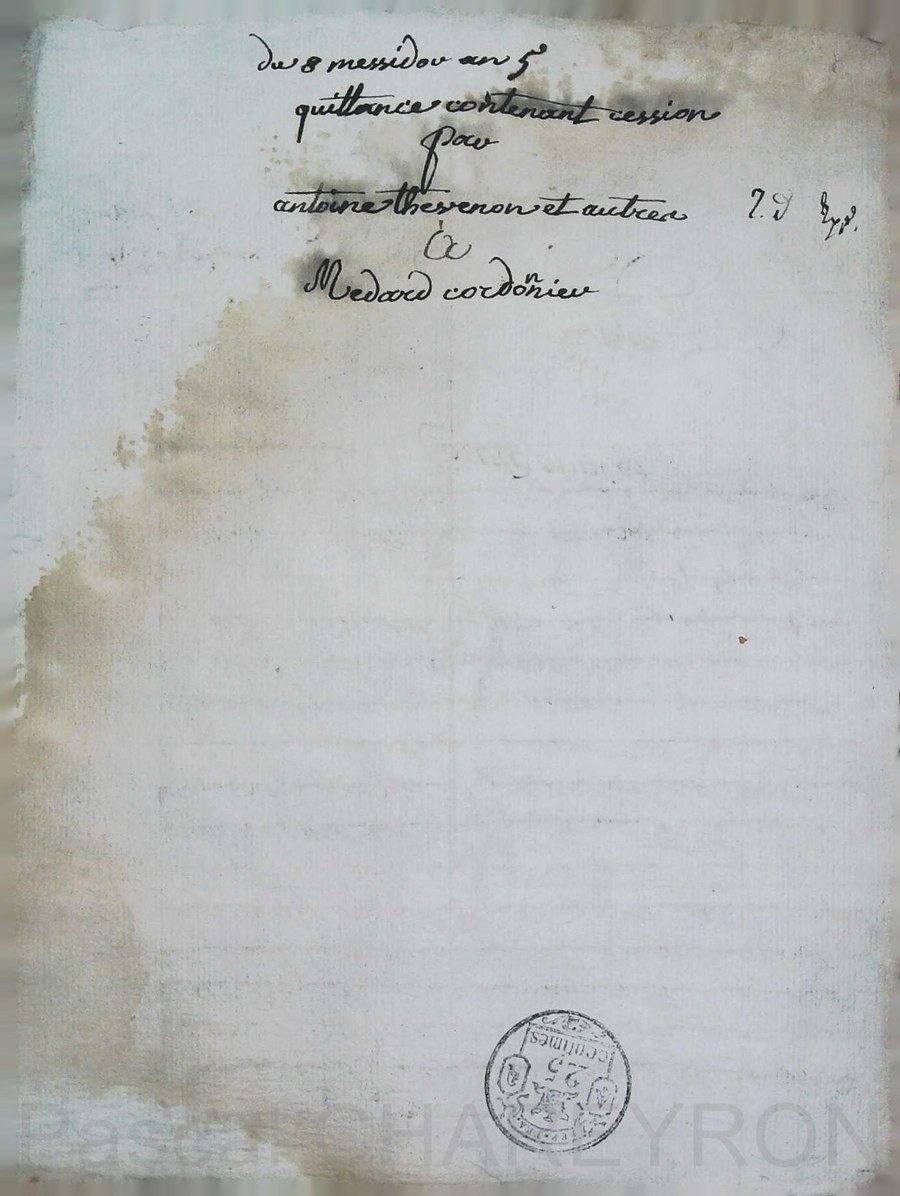 du 8 messidor an 5
quittance contenant cession
par
antoine thevenon et autres
à
Medard cordonnier
7. d Exp.
25
centimes
REP. FRA.
Pascal CHAREYRON